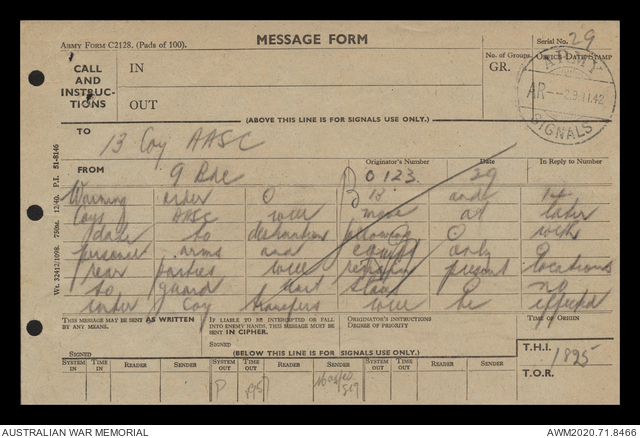 ARMY FORM C2128. (Pads of 100).
MESSAGE FORM
Serial No. 29
CALL AND INSTRUC- TIONS
IN
OUT
No. of Groups.
GR.
OFFICE DATE STAMP
ARMY
AR-- -29.11.42
SIGNALS
(ABOVE THIS LINE IS FOR SIGNALS USE ONLY.)
TO
13 Coy AASC
FROM
9 Bde
Originator's Number
O 123
Date
29
In Reply to Number
Warning order O 13 and 14
Coys AASC will move at later
date to destination following O with
personal arms and equipt only O
rear parties will remain present locations
to guard start O no
under Coy transfers will be effected
THIS MESSAGE MAY BE SENT AS WRITTEN BY ANY MEANS.
IF LIABLE TO BE INTERCEPTED OR FALL INTO ENEMY HANDS, THIS MESSAGE MUST BE SENT IN CIPHER.
ORIGINATOR'S INSTRUCTIONS DEGREE OF PRIORITY
TIME OF ORIGIN
SIGNED
SIGNED
(BELOW THIS LINE IS FOR SIGNALS USE ONLY.)
T.H.I. 1825
T.O.R.
SYSTEM IN
TIME IN
READER
SENDER
SYSTEM OUT
TIME OUT
READER
SENDER
SYSTEM OUT
TIME OUT
READER
SENDER
P
Wt. 32412/1098. 750M. 12/40. P.I. 51-8146
AUSTRALIAN WAR MEMORIAL
AWM2020.71.8466